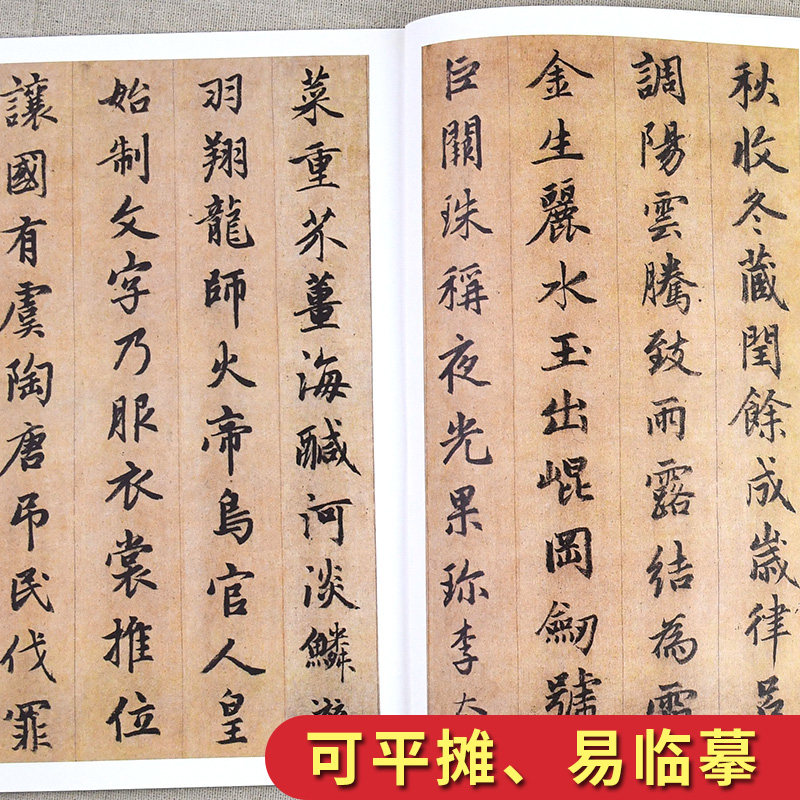 秋收冬藏閏餘成歲律吕
調陽雲騰致雨露結為
金生麗水玉出崐岡劒號
巨闕珠稱夜光果珎李
菜重芥薑海醎河淡鱗
羽翔龍師火帝鳥官人皇
始制文字乃服衣裳推位
讓國有虞陶唐吊民伐罪
可平摊、易临摹